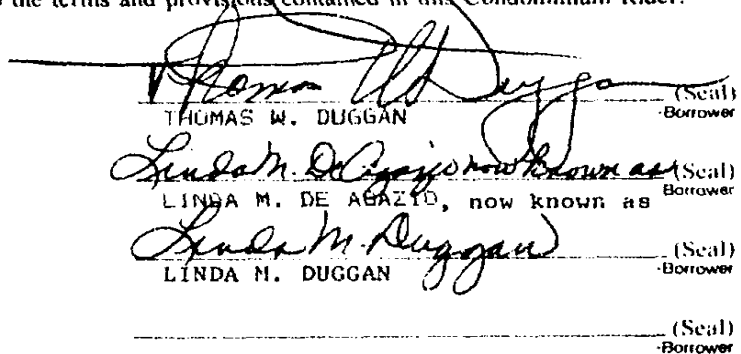 the terms and provisions contained in this Condominium Rider.
Thomas W Duggan (Seal)
THOMAS W. DUGGAN -Borrower
Linda M. De Agazio now known as (Seal)
LINDA M. DE AGAZIO, now known as -Borrower
Linda M. Duggan (Seal)
LINDA M. DUGGAN -Borrower
(Seal)
-Borrower